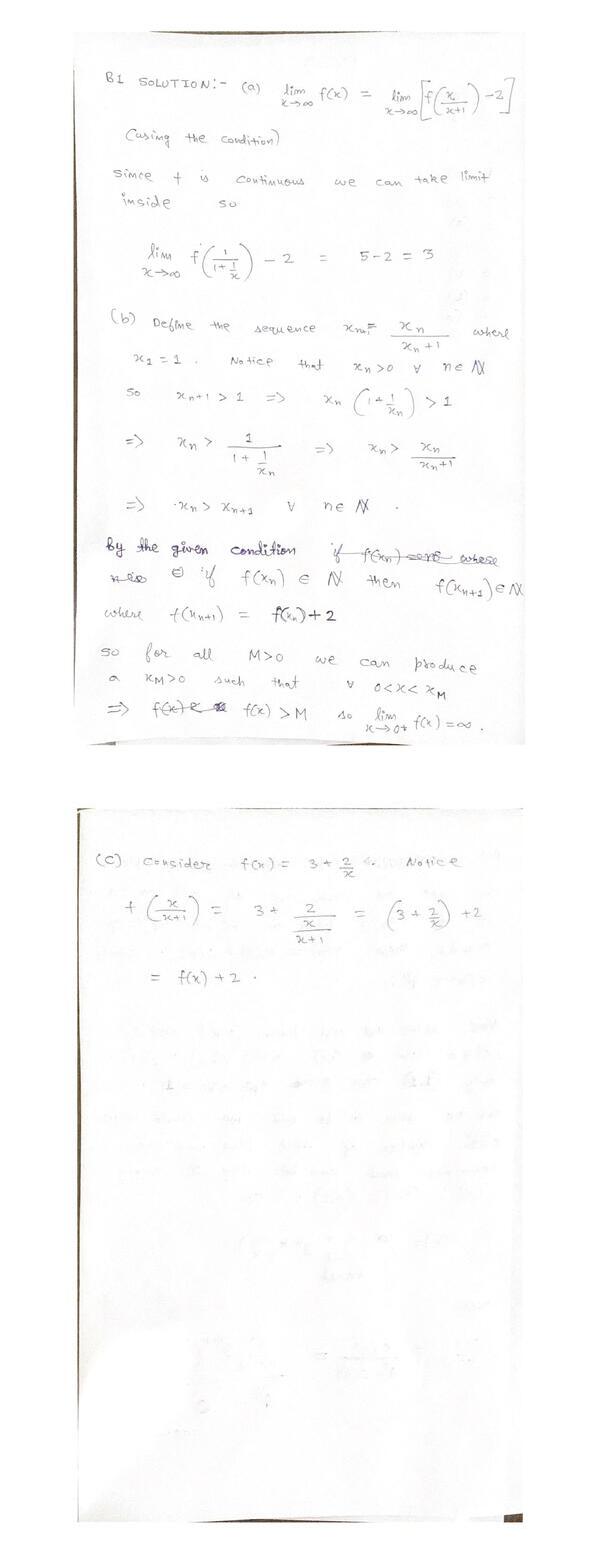 B1 SOLUTION:- (a) lim x→∞ f(x) = lim x→∞ [f(x/(x+1)) -2]
(using the condition)
Since f is continuous we can take limit
inside so
lim x→∞ f(1/(1+1/x)) - 2 = 5-2 = 3
(b) Define the sequence x_{n+1} = x_n/(x_n+1) where
x_1 = 1. Notice that x_n>0 ∀ n∈ℕ
so x_n+1 > 1 => x_n (1+1/x_n) > 1
=> x_n > 1/(1+1/x_n) => x_n > x_n/(x_n+1)
=> x_n > x_{n+1} ∀ n∈ℕ.
by the given condition if f(x_n) where
if f(x_n) ∈ ℕ then f(x_{n+1}) ∈ ℕ
where f(x_{n+1}) = f(x_n)+2
so for all M>0 we can produce
a x_M>0 such that ∀ 0<x<x_M
=> f(x) > M so lim x→0+ f(x) = ∞.
(C) Consider f(x) = 3 + 2/x. Notice
f(x/(x+1)) = 3 + 2/(x/(x+1)) = (3 + 2/x) +2
= f(x) + 2.